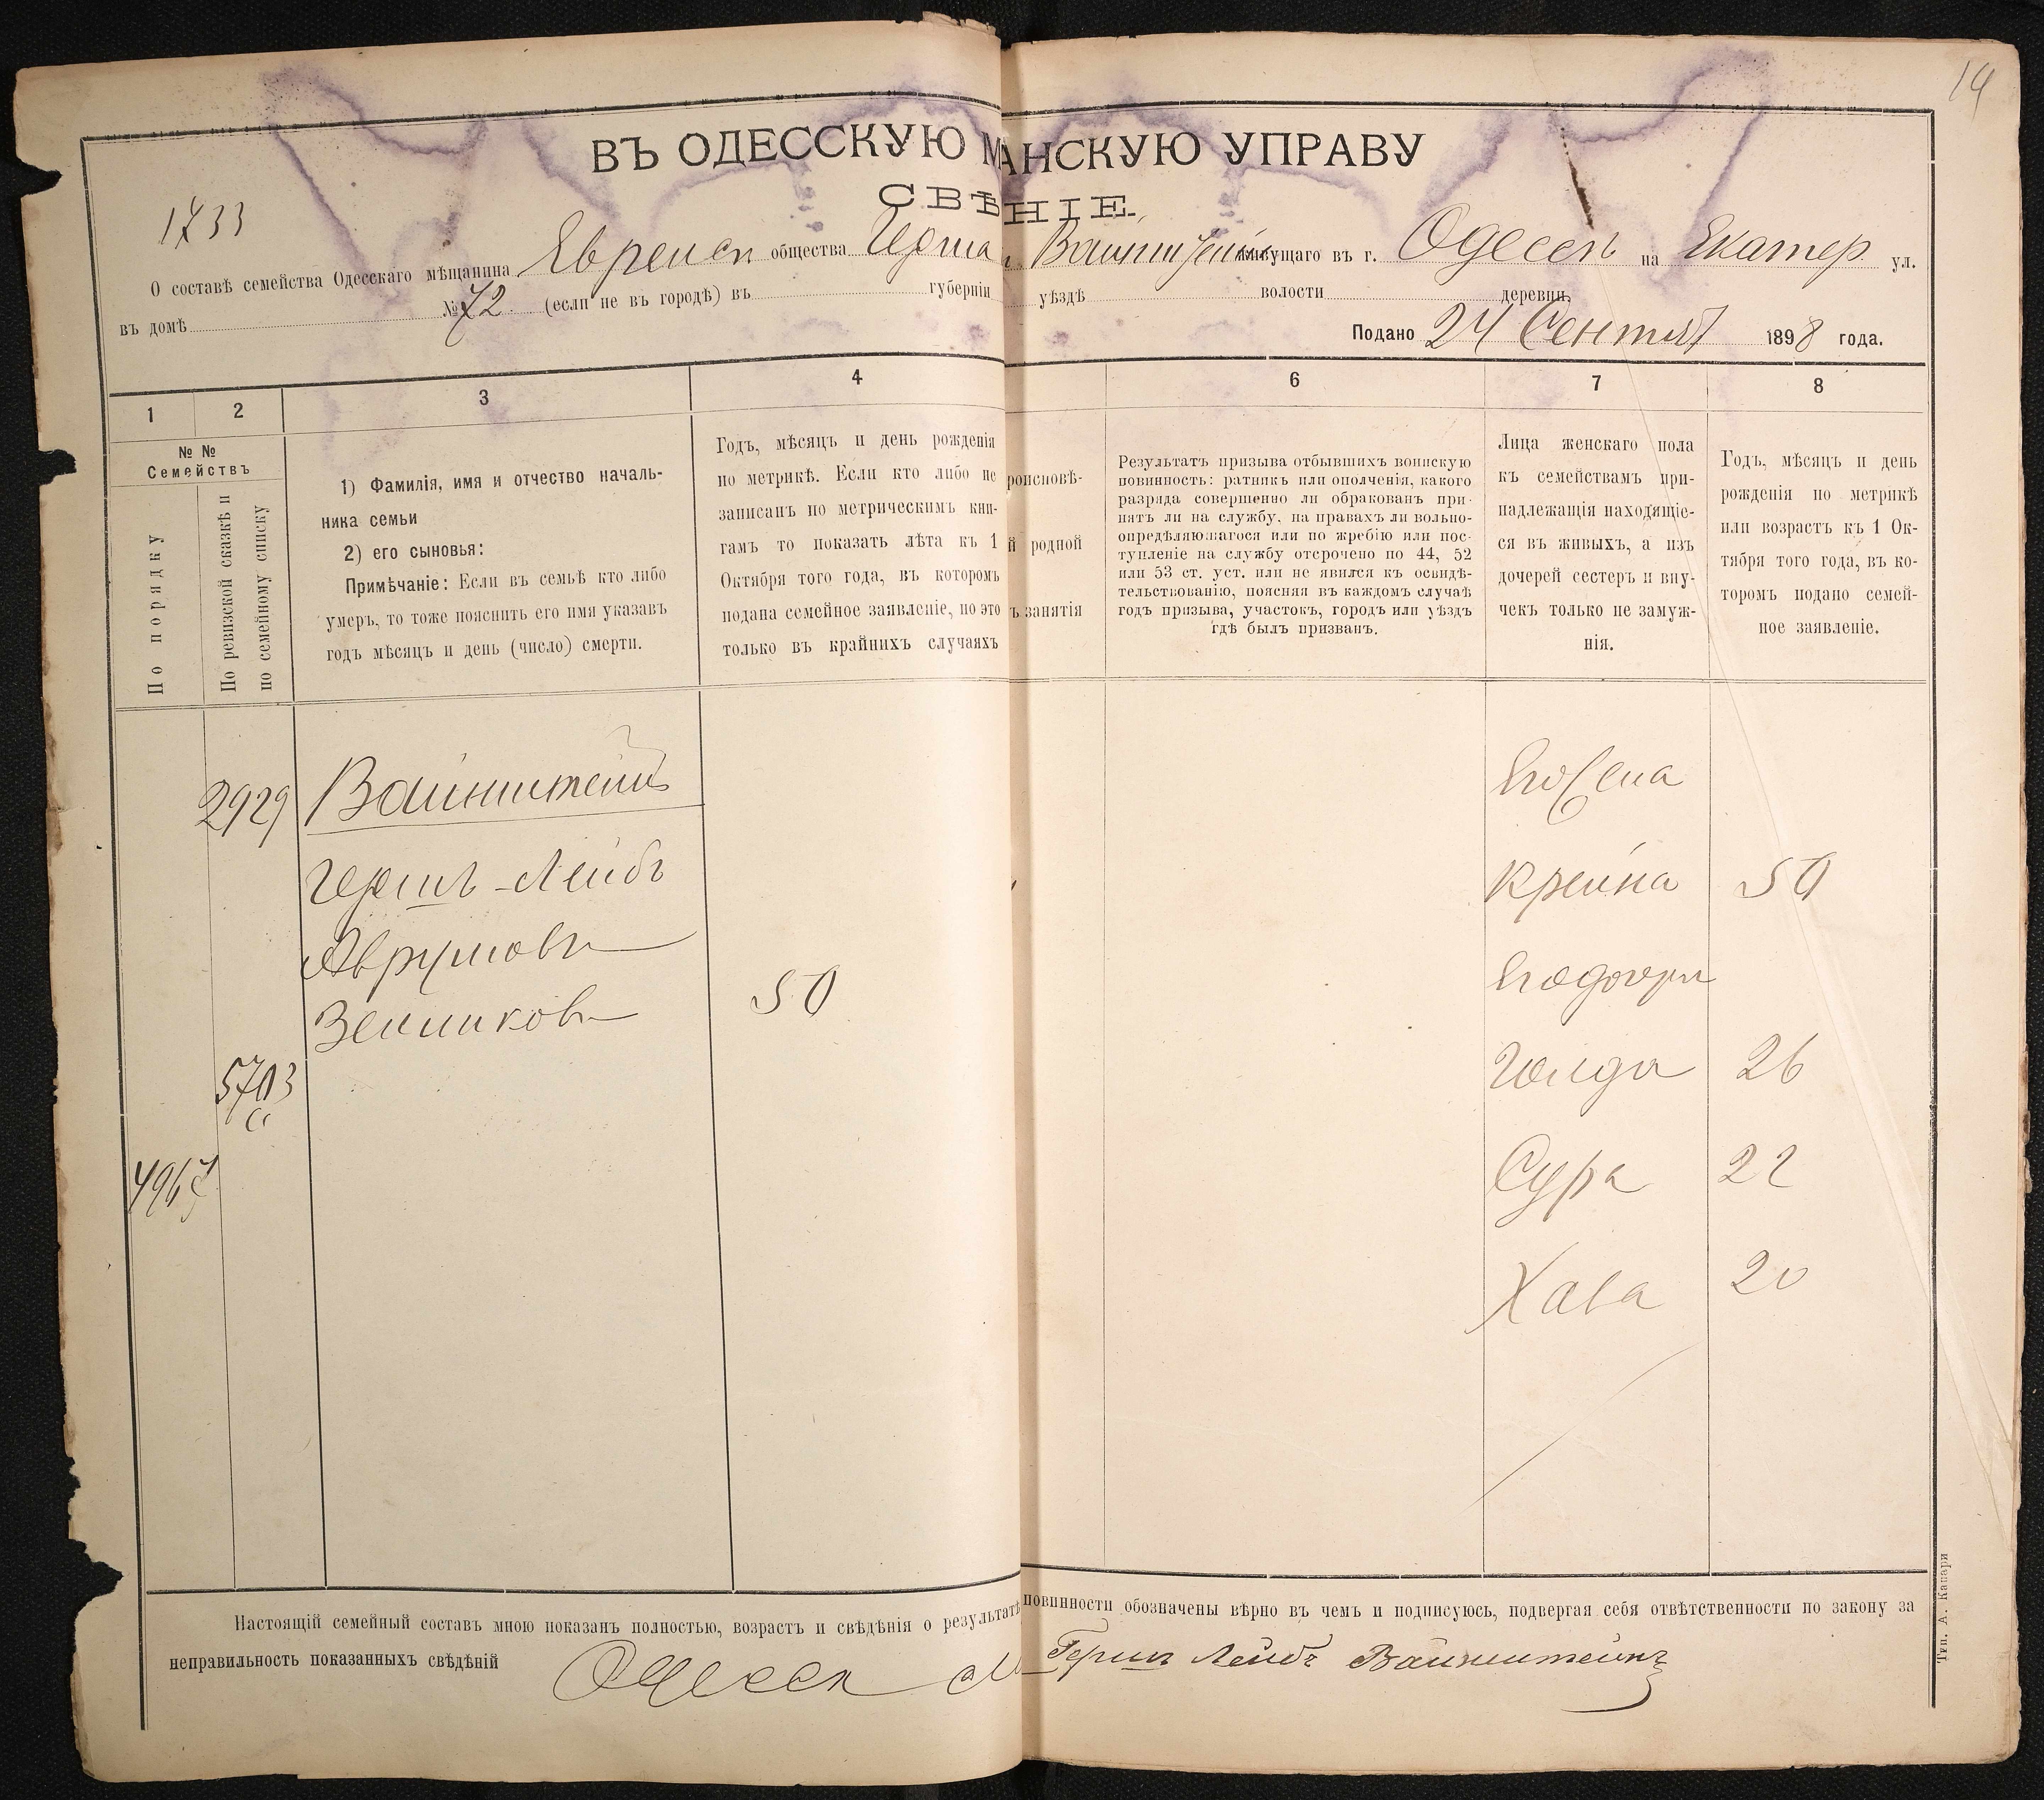 14
ВЪ ОДЕССКУЮ М АНСКУЮ УПРАВУ
СВѢ НІЕ.
1733
О составѣ семейства Одесскаго мѣщанина Евреиск общества Герша Вайнштейн живущаго въ г. Одессѣ на Екатер. ул.
въ домѣ № 72 (если не въ городѣ) въ губерніи уѣздѣ волости деревни,
Подано 24 Сентяб 1898 года.
1 2 3 4 6 7 8
№ №
Семействъ
По порядку
По ревизской сказкѣ и
по семейному списку
1) Фамилія, имя и отчество началь-
ника семьи
2) его сыновья:
Примѣчаніе: Если въ семьѣ кто либо
умеръ, то тоже пояснить его имя указавъ
годъ мѣсяцъ и день (число) смерти.
Годъ, мѣсяцъ и день рожденія
по метрикѣ. Если кто либо не
записанъ по метрическимъ кни-
гамъ то показать лѣта къ 1
Октября того года, въ которомъ
подана семейное заявленіе, но это
только въ крайнихъ случаяхъ
роисповѣ-
й родной
ъ занятія
Результатъ призыва отбывшихъ воинскую
повинность: ратникъ или ополченія, какого
разряда совершенно ли обракованъ при-
нятъ ли на службу, на правахъ ли вольно-
опредѣляющагося или по жребію или пос-
тупленіе на службу отсрочено по 44, 52
или 53 ст. уст. или не явился къ освидѣ-
тельствованію, поясняя въ каждомъ случаѣ
годъ призыва, участокъ, городъ или уѣздъ
гдѣ былъ призванъ.
Лица женскаго пола
къ семействамъ при-
надлежащія находящіе-
ся въ живыхъ, а изъ
дочерей сестеръ и вну-
чекъ только не замуж-
нія.
Годъ, мѣсяцъ и день
рожденія по метрикѣ
или возрастъ къ 1 Ок-
тября того года, въ ко-
торомъ подано семей-
ное заявленіе.
2929 Вайнштейнъ
Гершъ-Лейбъ
Аврумовъ
Зейликовъ 50
5703
4967
Его жена
Крейна 50
Его дочери
Голда 26
Сура 22
Хава 20
Настоящій семейный составъ мною показанъ полностью, возрастъ и свѣдѣнія о результатѣ повинности обозначены вѣрно въ чемъ и подписуюсь, подвергая себя отвѣтственности по закону за
неправильность показанныхъ свѣдѣній Одесск М Гершъ Лейбъ Вайнштейнъ
Тип. А. Канари